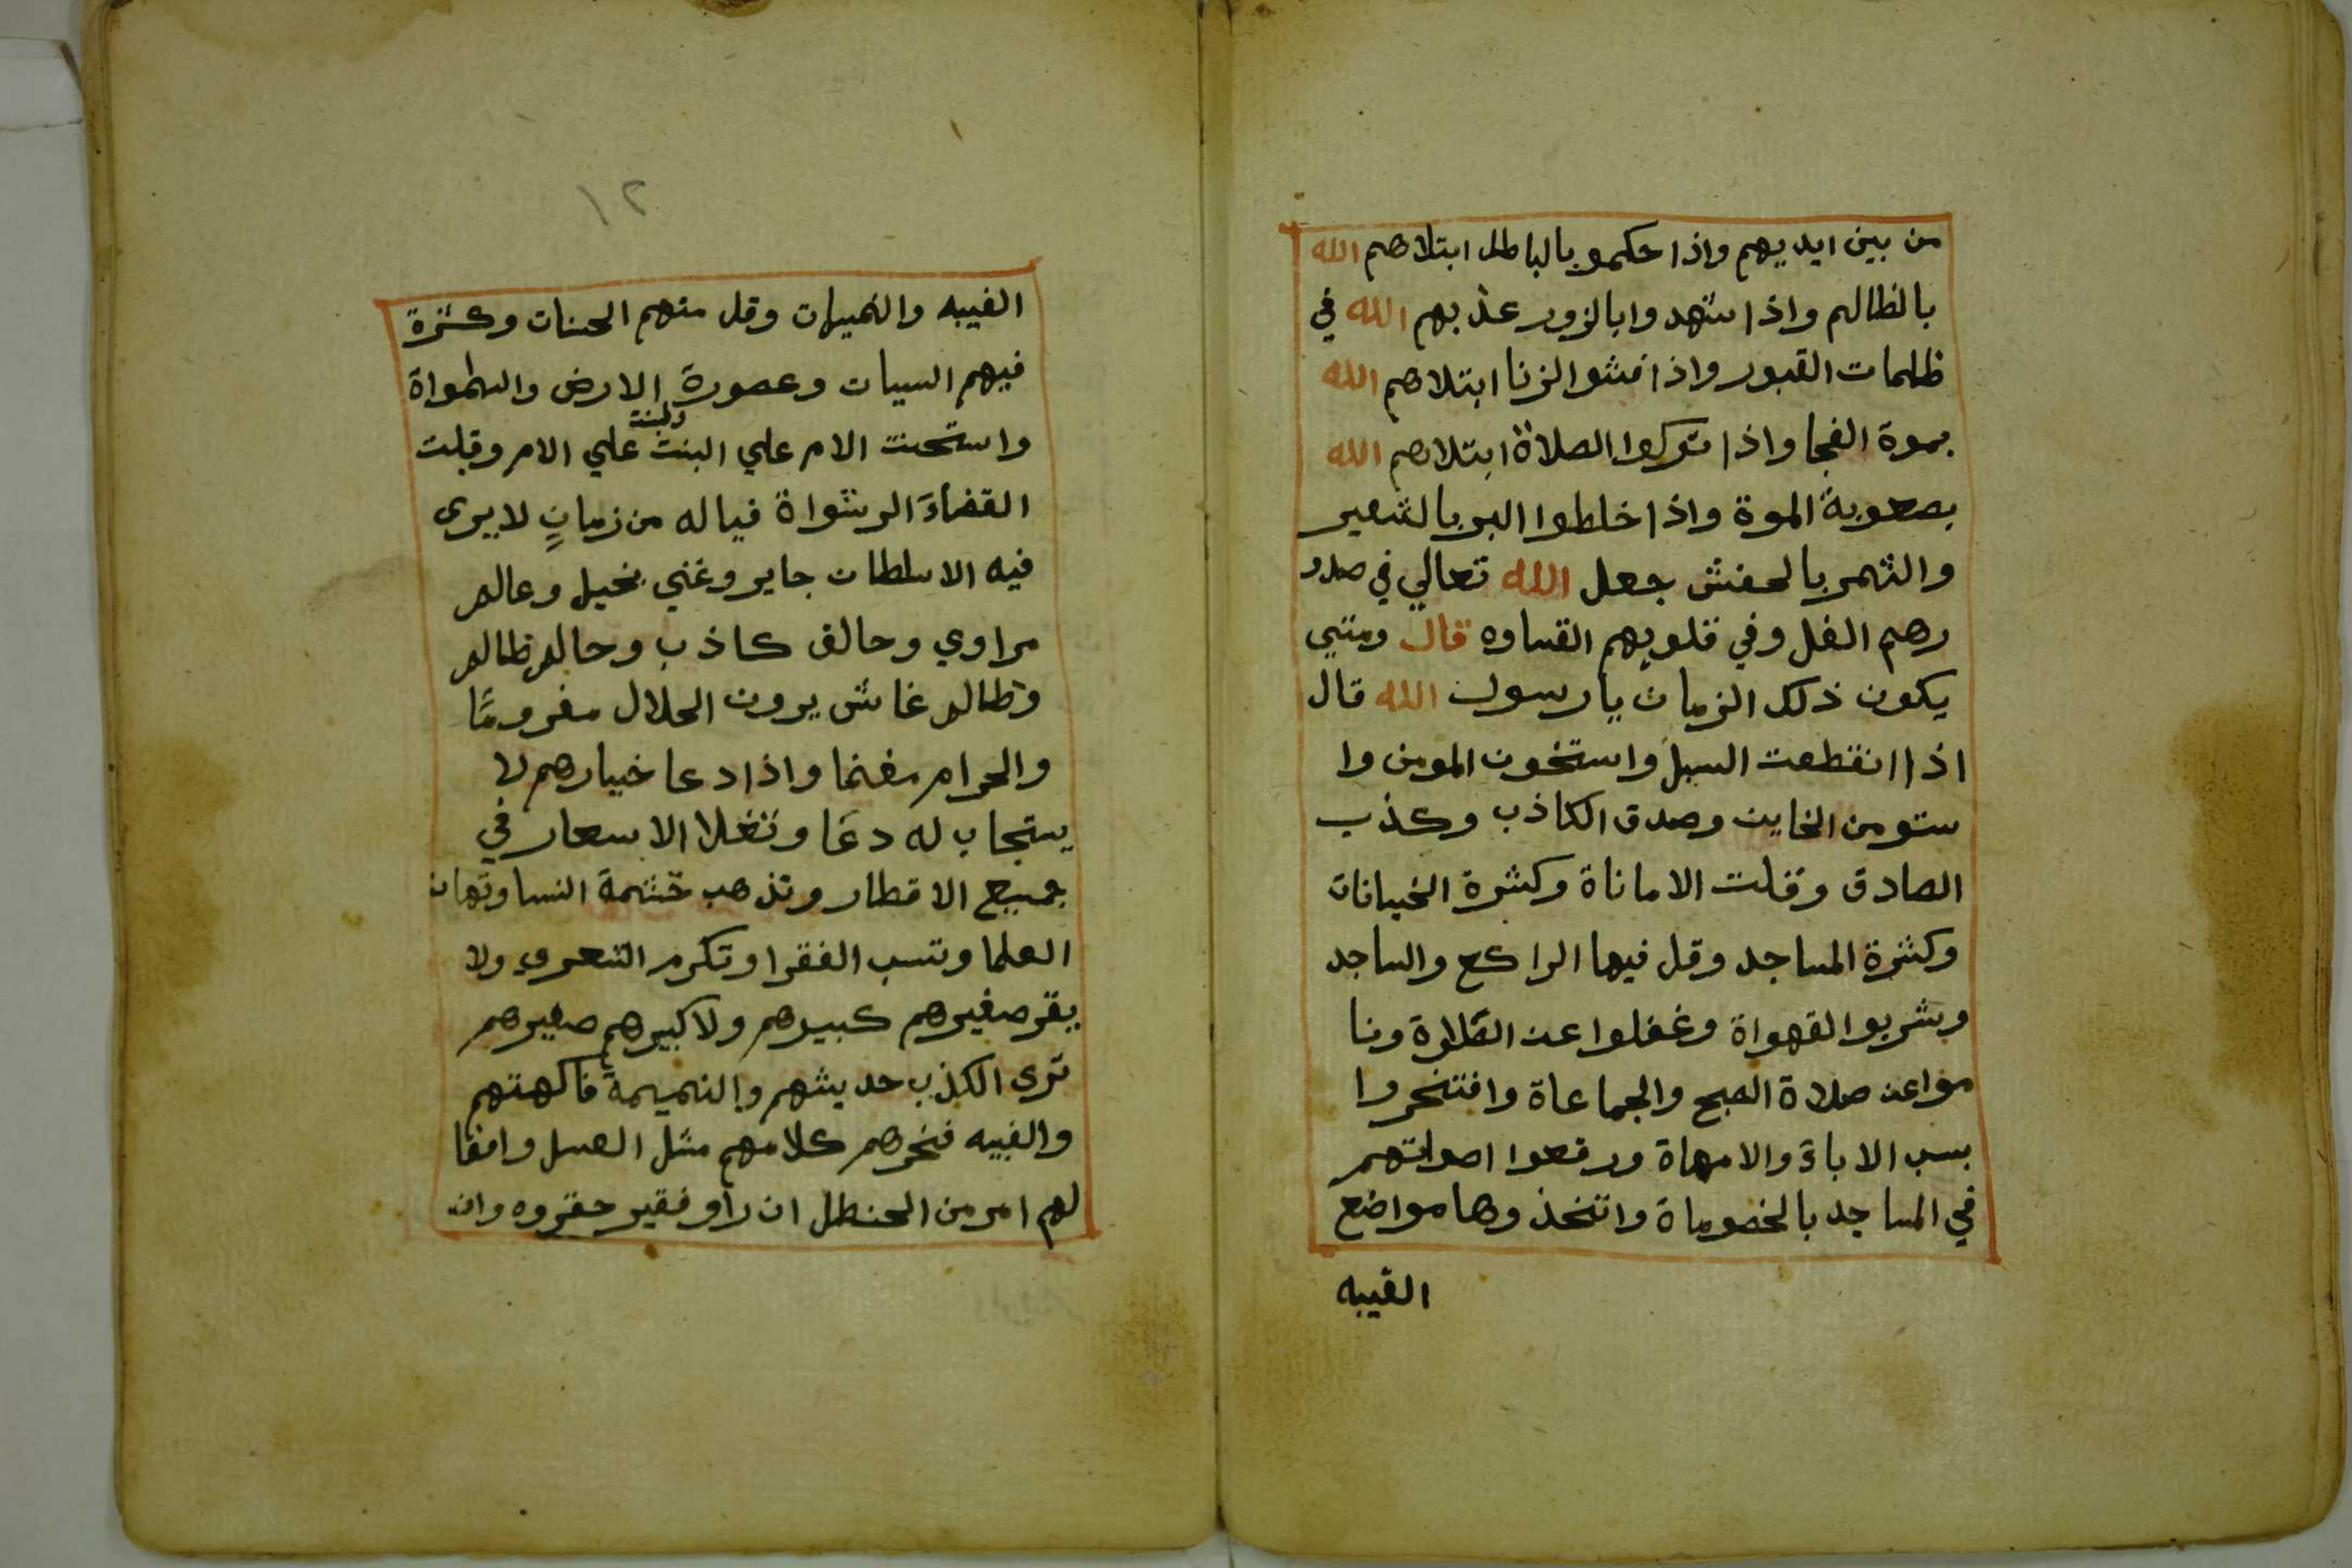 من بين ايديهم واذا حكمو بالباطل ابتلاهم الله
بالظالم واذا شهدوا بالزور عذبهم الله في
ظلمات القبور واذا فشوا الزنا ابتلاهم الله
بموة الفجا واذا تركوا الصلاة ابتلاهم الله
بصعوبة الموة واذا خلطوا البر بالشعير
والتمر بالحفش جعل الله تعالي في صدو
رهم الغل وفي قلوبهم القساوه قال ومتي
يكون ذلك الزمان يا رسول الله قال
اذا انقطعت السبل واستخون المومن وا
ستومن الخاين وصدق الكاذب وكذب
الصادق وقلت الاماناة وكثرة الخيانات
وكثرة المساجد وقل فيها الراكع والساجد
وشربوا القهواة وغفلوا عن الصلاة ونا
موا عن صلاة الصبح والجماعاة وافتخروا
بسب الاباء والامهاة ورفعوا اصواتهم
في المساجد بالخصوماة واتخذوها مواضع
الغيبه
١٢
الغيبه والنميمات وقل منهم الحسنات وكثرة
فيهم السيات وعصورة الارض والسمواة
واستحنت الام علي البنت والبنت علي الام وقبلت
القضاءَ الرشواة فياله من زمانٍ لا يرى
فيه الا سلطان جاير وغني بخيل وعالم
مراوي وحالف كاذب وحالم ظالم
وظالم غاش يرون الحلال مغرومًا
والحرام مغنما واذا دعا خيارهم لا
يستجاب له دعَا وتغلا الاسعار في
جميع الاقطار وتذهب حشمة النسا وتهان
العلما وتسب الفقرا وتكرم الشعري ولا
يقر صغيرهم كبيرهم ولا كبيرهم صغيرهم
ترى الكذب حديثهم والنميمة فاكهتهم
والغيبه فخرهم كلامهم مثل العسل وافعا
لهم امر من الحنظل ان راو فقير حقروه وان